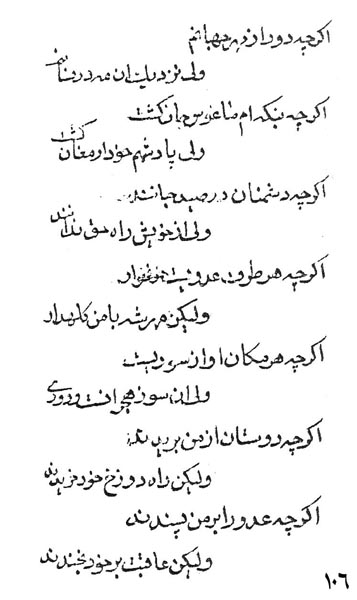 اگرچه دور از مهر جهانم
ولی نزدیک آن مه در نهانم
اگرچه بنگه ام جان گشت
ولی پادشهم خود ارمغان گشت
اگرچه دشمنان در صید جانند
ولی از خویش راه حق ندانند
اگرچه هر طرف عدویت خونخوار
ولیکن مرشد با من کاربدار
اگرچه هر مکان آواز سروریست
ولی این سوز هجرانست و دوری
اگرچه دوستان از من بریدند
ولیکن راه دوزخ خود خریدند
اگرچه عدو را بر من پسندند
ولیکن عاقبت بر خود بخندند
۱۰۶